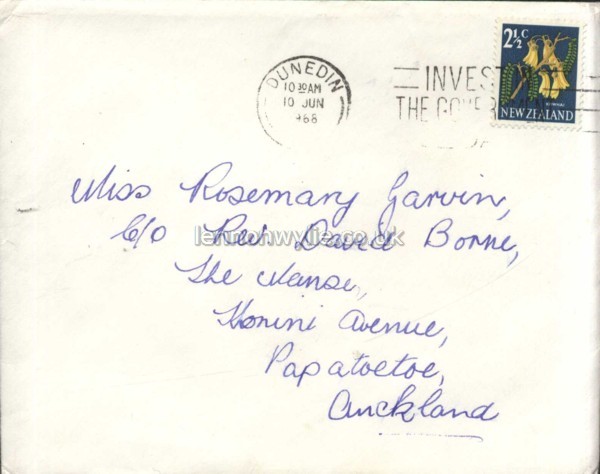 2½c
DUNEDIN
10 30 AM
10 JUN
1968
INVEST
THE GOVER
NEW ZEALAND
Miss Rosemary Garvin,
C/o Rev David Borrie,
lennonwylie.co.uk
The Manse,
Konini Avenue,
Papatoetoe,
Auckland